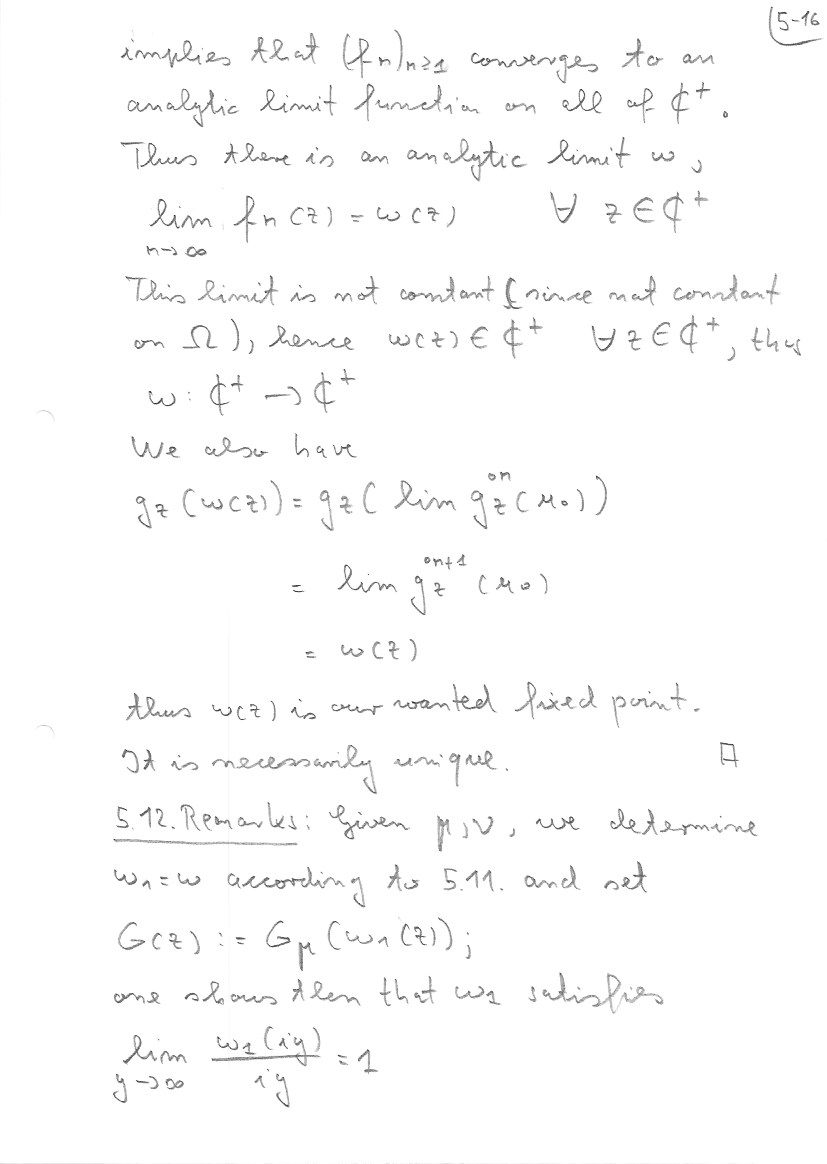 5-16
implies that (fn)n≥1 converges to an
analytic limit function on all of ℂ⁺.
Thus there is an analytic limit ω,
lim fn(z) = ω(z) ∀ z ∈ ℂ⁺
n→∞
This limit is not constant (since not constant
on Ω), hence ω(z) ∈ ℂ⁺ ∀ z ∈ ℂ⁺, thus
ω : ℂ⁺ → ℂ⁺
We also have
g_z(ω(z)) = g_z( lim g_z^{∘n}(u₀))
= lim g_z^{∘n+1}(u₀)
= ω(z)
thus ω(z) is our wanted fixed point.
It is necessarily unique. □
5.12. Remarks: Given μ, ν, we determine
ω₁ = ω according to 5.11. and set
G(z) := G_μ(ω₁(z));
one shows then that ω₁ satisfies
lim ω₁(iy)/iy = 1
y→∞